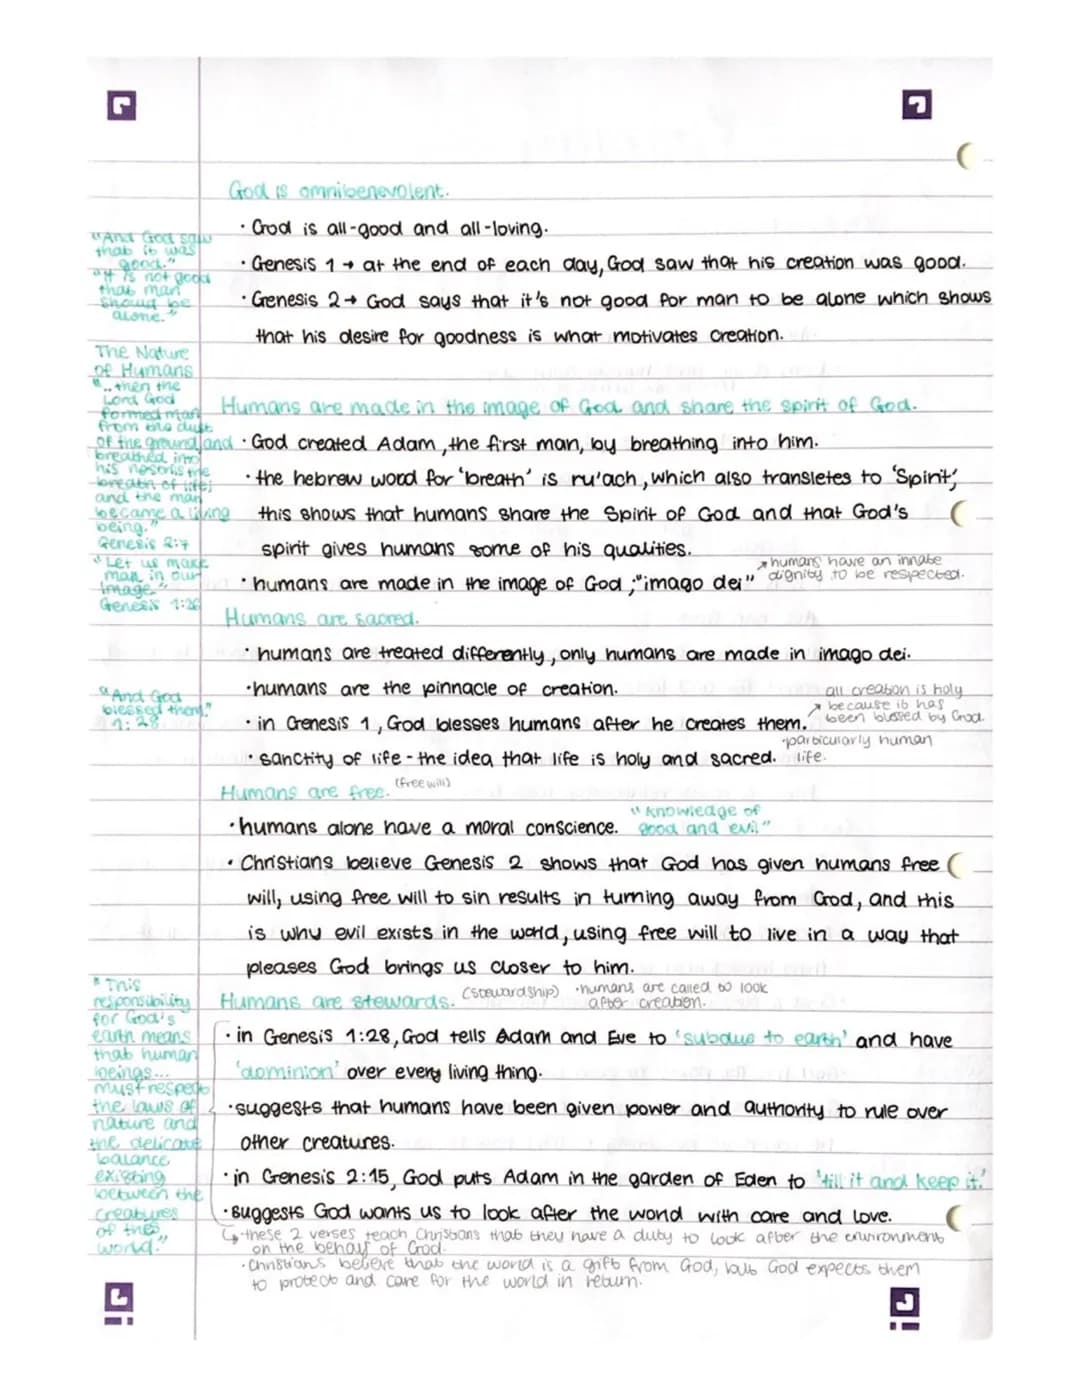 God is omnibenevolent.
· God is all-good and all-loving.
"And God saw
that it was
good."
"it is not good
that man
should be
alone."
· Genesis 1 → at the end of each day, God saw that his creation was good.
· Genesis 2 → God says that it's not good for man to be alone which shows
that his desire for goodness is what motivates creation.
The Nature
of Humans
"...then the
Lord God
formed man
from the dust
of the ground and
breathed into
his nosorils the
breath of life;
and the man
became a living
being."
Genesis 2:7
"Let us make
man in our
image."
Genesis 1:26
Humans are made in the image of God and share the spirit of God.
· God created Adam, the first man, by breathing into him.
· the hebrew word for 'breath' is ru'ach, which also transletes to 'Spirit',
this shows that humans share the Spirit of God and that God's
spirit gives humans some of his qualities.
· humans are made in the image of God ; "imago dei"
↗ humans have an innate
dignity to be respected.
Humans are sacred.
· humans are treated differently, only humans are made in imago dei.
· humans are the pinnacle of creation.
"And God
blessed them."
1:28
· in Genesis 1, God blesses humans after he creates them.
all creation is holy
↗ because it has
been blessed by God.
· particularly human
life.
· sanctity of life - the idea that life is holy and sacred.
Humans are free. (free will)
· humans alone have a moral conscience.
"knowledge of
good and evil"
· Christians believe Genesis 2 shows that God has given humans free
will, using free will to sin results in turning away from God, and this
is why evil exists in the world, using free will to live in a way that
pleases God brings us closer to him.
Humans are stewards. (stewardship) · humans are called to look
after creation.
"This
responsibility
for God's
earth means
that human
beings...
must respect
the laws of
nature and
the delicate
balance
existing
between the
creatures
of this
world."
· in Genesis 1:28, God tells Adam and Eve to 'subdue to earth' and have
'dominion' over every living thing.
· suggests that humans have been given power and authority to rule over
other creatures.
· in Genesis 2:15, God puts Adam in the garden of Eden to 'till it and keep it.'
· suggests God wants us to look after the world with care and love.
↳ · these 2 verses teach Christians that they have a duty to look after the environment
on the behalf of God.
· Christians believe that the world is a gift from God, but God expects them
to protect and care for the world in return.